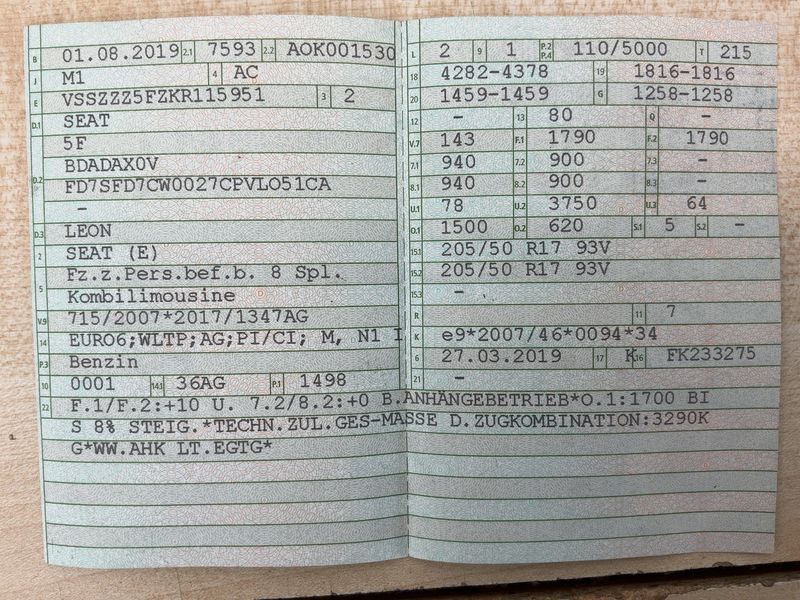 B 01.08.2019 2.1 7593 2.2 AOK001530
J M1 4 AC
E VSSZZZ5FZKR115951 3 2
D.1 SEAT
5F
BDADAX0V
D.2 FD7SFD7CW0027CPVLO51CA
–
D.3 LEON
2 SEAT (E)
Fz.z.Pers.bef.b. 8 Spl.
5 Kombilimousine
V.9 715/2007*2017/1347AG
14 EURO6;WLTP;AG;PI/CI; M, N1 I
P.3 Benzin
10 0001 14.1 36AG P.1 1498
L 2 9 1 P.2 P.4 110/5000 T 215
18 4282-4378 19 1816-1816
20 1459-1459 G 1258-1258
12 – 13 80 Q –
V.7 143 F.1 1790 F.2 1790
7.1 940 7.2 900 7.3 –
8.1 940 8.2 900 8.3 –
U.1 78 U.2 3750 U.3 64
O.1 1500 O.2 620 S.1 5 S.2 –
15.1 205/50 R17 93V
15.2 205/50 R17 93V
15.3 –
R 11 7
K e9*2007/46*0094*34
6 27.03.2019 17 K 16 FK233275
21 –
22 F.1/F.2:+10 U. 7.2/8.2:+0 B.ANHÄNGEBETRIEB*O.1:1700 BI
S 8% STEIG.*TECHN.ZUL.GES-MASSE D.ZUGKOMBINATION:3290K
G*WW.AHK LT.EGTG*